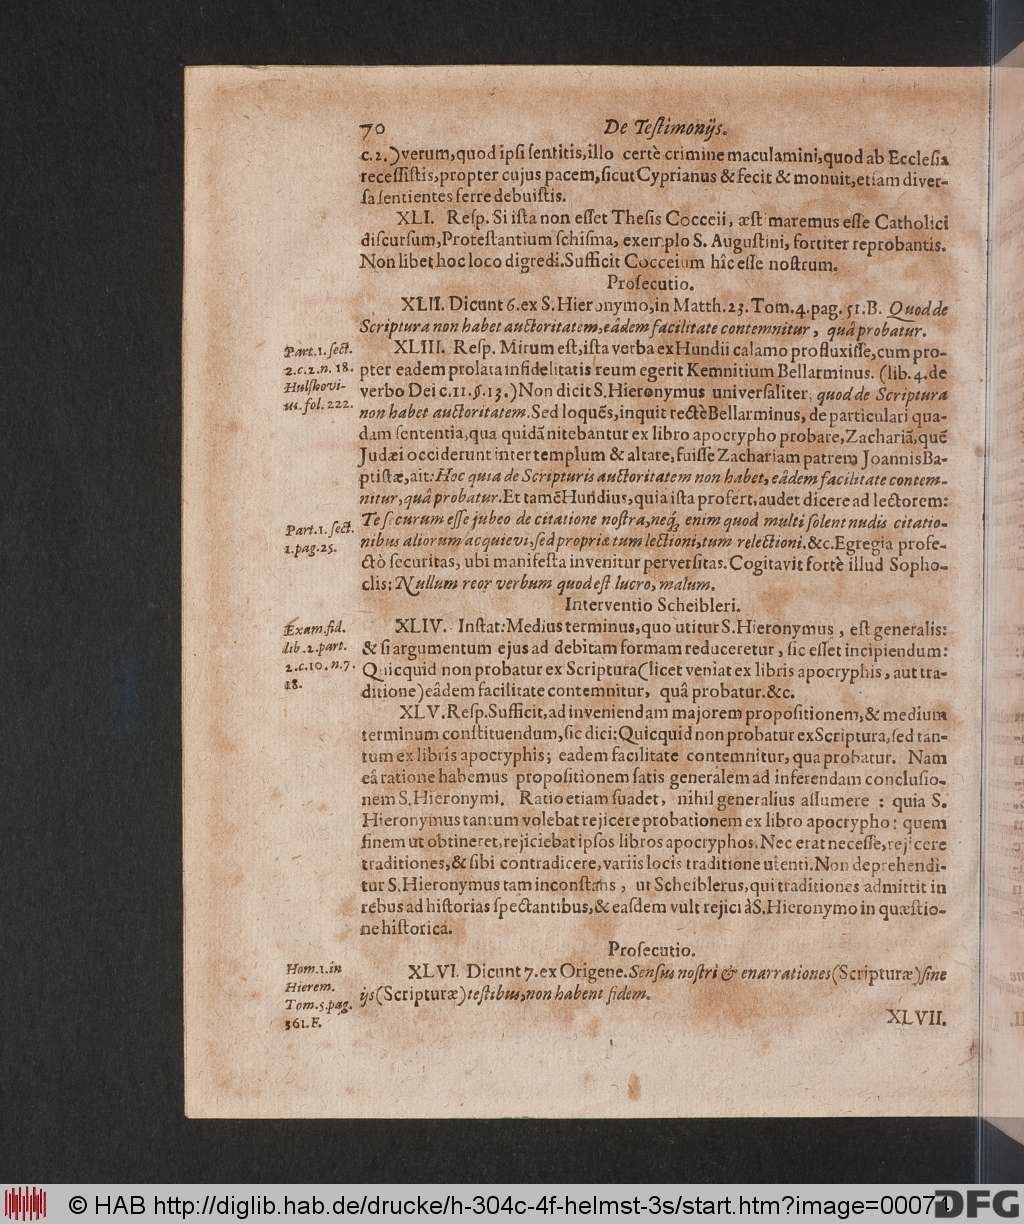 70 De Teſtimonijs.
c. 2.) verum, quod ipſi ſentitis, illo certè crimine maculamini, quod ab Eccleſia
receſſiſtis, propter cujus pacem, ſicut Cyprianus & fecit & monuit, etiam diver-
ſa ſentientes ferre debuiſtis.
XLI. Reſp. Si iſta non eſſet Theſis Cocceii, æſtimaremus eſſe Catholici
diſcurſum, Proteſtantium ſchiſma, exemplo S. Auguſtini, fortiter reprobantis.
Non libet hoc loco digredi. Sufficit Cocceium hîc eſſe noſtrum.
Proſecutio.
XLII. Dicunt 6. ex S. Hieronymo, in Matth. 23. Tom. 4. pag. 51. B. Quod de
Scriptura non habet auctoritatem, eâdem facilitate contemnitur, quâ probatur.
Part. 1. ſect.
2. c. 2. n. 18.
Hulſkovi-
us. fol. 222.
XLIII. Reſp. Mirum eſt, iſta verba ex Hundii calamo profluxiſſe, cum pro-
pter eadem prolata infidelitatis reum egerit Kemnitium Bellarminus. (lib. 4. de
verbo Dei c. 11. §. 13.) Non dicit S. Hieronymus univerſaliter, quod de Scriptura
non habet auctoritatem. Sed loquẽs, inquit rectè Bellarminus, de particulari qua-
dam ſententia, qua quidã nitebantur ex libro apocrypho probare, Zachariã, quẽ
Judæi occiderunt inter templum & altare, fuiſſe Zachariam patrem Joannis Ba-
ptiſtæ, ait: Hoc quia de Scripturis auctoritatem non habet, eâdem facilitate contem-
nitur, quâ probatur. Et tamẽ Hundius, quia iſta profert, audet dicere ad lectorem:
Part. 1. ſect.
1. pag. 25.
Te ſecurum eſſe jubeo de citatione noſtra, neq; enim quod multi ſolent nudis citatio-
nibus aliorum acquievi, ſed propriæ tum lectioni, tum relectioni. &c. Egregia profe-
ctò ſecuritas, ubi manifeſta invenitur perverſitas. Cogitavit fortè illud Sopho-
clis: Nullum reor verbum quod eſt lucro, malum.
Interventio Scheibleri.
Exam. fid.
lib. 2. part.
2. c. 10. n. 7.
18.
XLIV. Inſtat: Medius terminus, quo utitur S. Hieronymus, eſt generalis:
& ſi argumentum ejus ad debitam formam reduceretur, ſic eſſet incipiendum:
Quicquid non probatur ex Scriptura (licet veniat ex libris apocryphis, aut tra-
ditione) eâdem facilitate contemnitur, quâ probatur. &c.
XLV. Reſp. Sufficit, ad inveniendam majorem propoſitionem, & medium
terminum conſtituendum, ſic dici: Quicquid non probatur ex Scriptura, ſed tan-
tum ex libris apocryphis; eadem facilitate contemnitur, qua probatur. Nam
eâ ratione habemus propoſitionem ſatis generalem ad inferendam concluſio-
nem S. Hieronymi. Ratio etiam ſuadet, nihil generalius aſſumere: quia S.
Hieronymus tantum volebat rejicere probationem ex libro apocrypho: quem
finem ut obtineret, rejiciebat ipſos libros apocryphos. Nec erat neceſſe, rejicere
traditiones, & ſibi contradicere, variis locis traditione utenti. Non deprehendi-
tur S. Hieronymus tam inconſtans, ut Scheiblerus, qui traditiones admittit in
rebus ad hiſtorias ſpectantibus, & eaſdem vult rejici à S. Hieronymo in quæſtio-
ne hiſtorica.
Proſecutio.
Hom. 1. in
Hierem.
Tom. 5. pag.
361. F.
XLVI. Dicunt 7. ex Origene. Senſus noſtri & enarrationes (Scripturæ) ſine
ijs (Scripturæ) teſtibus, non habent fidem.
XLVII.
© HAB http://diglib.hab.de/drucke/h-304c-4f-helmst-3s/start.htm?image=00074
DFG